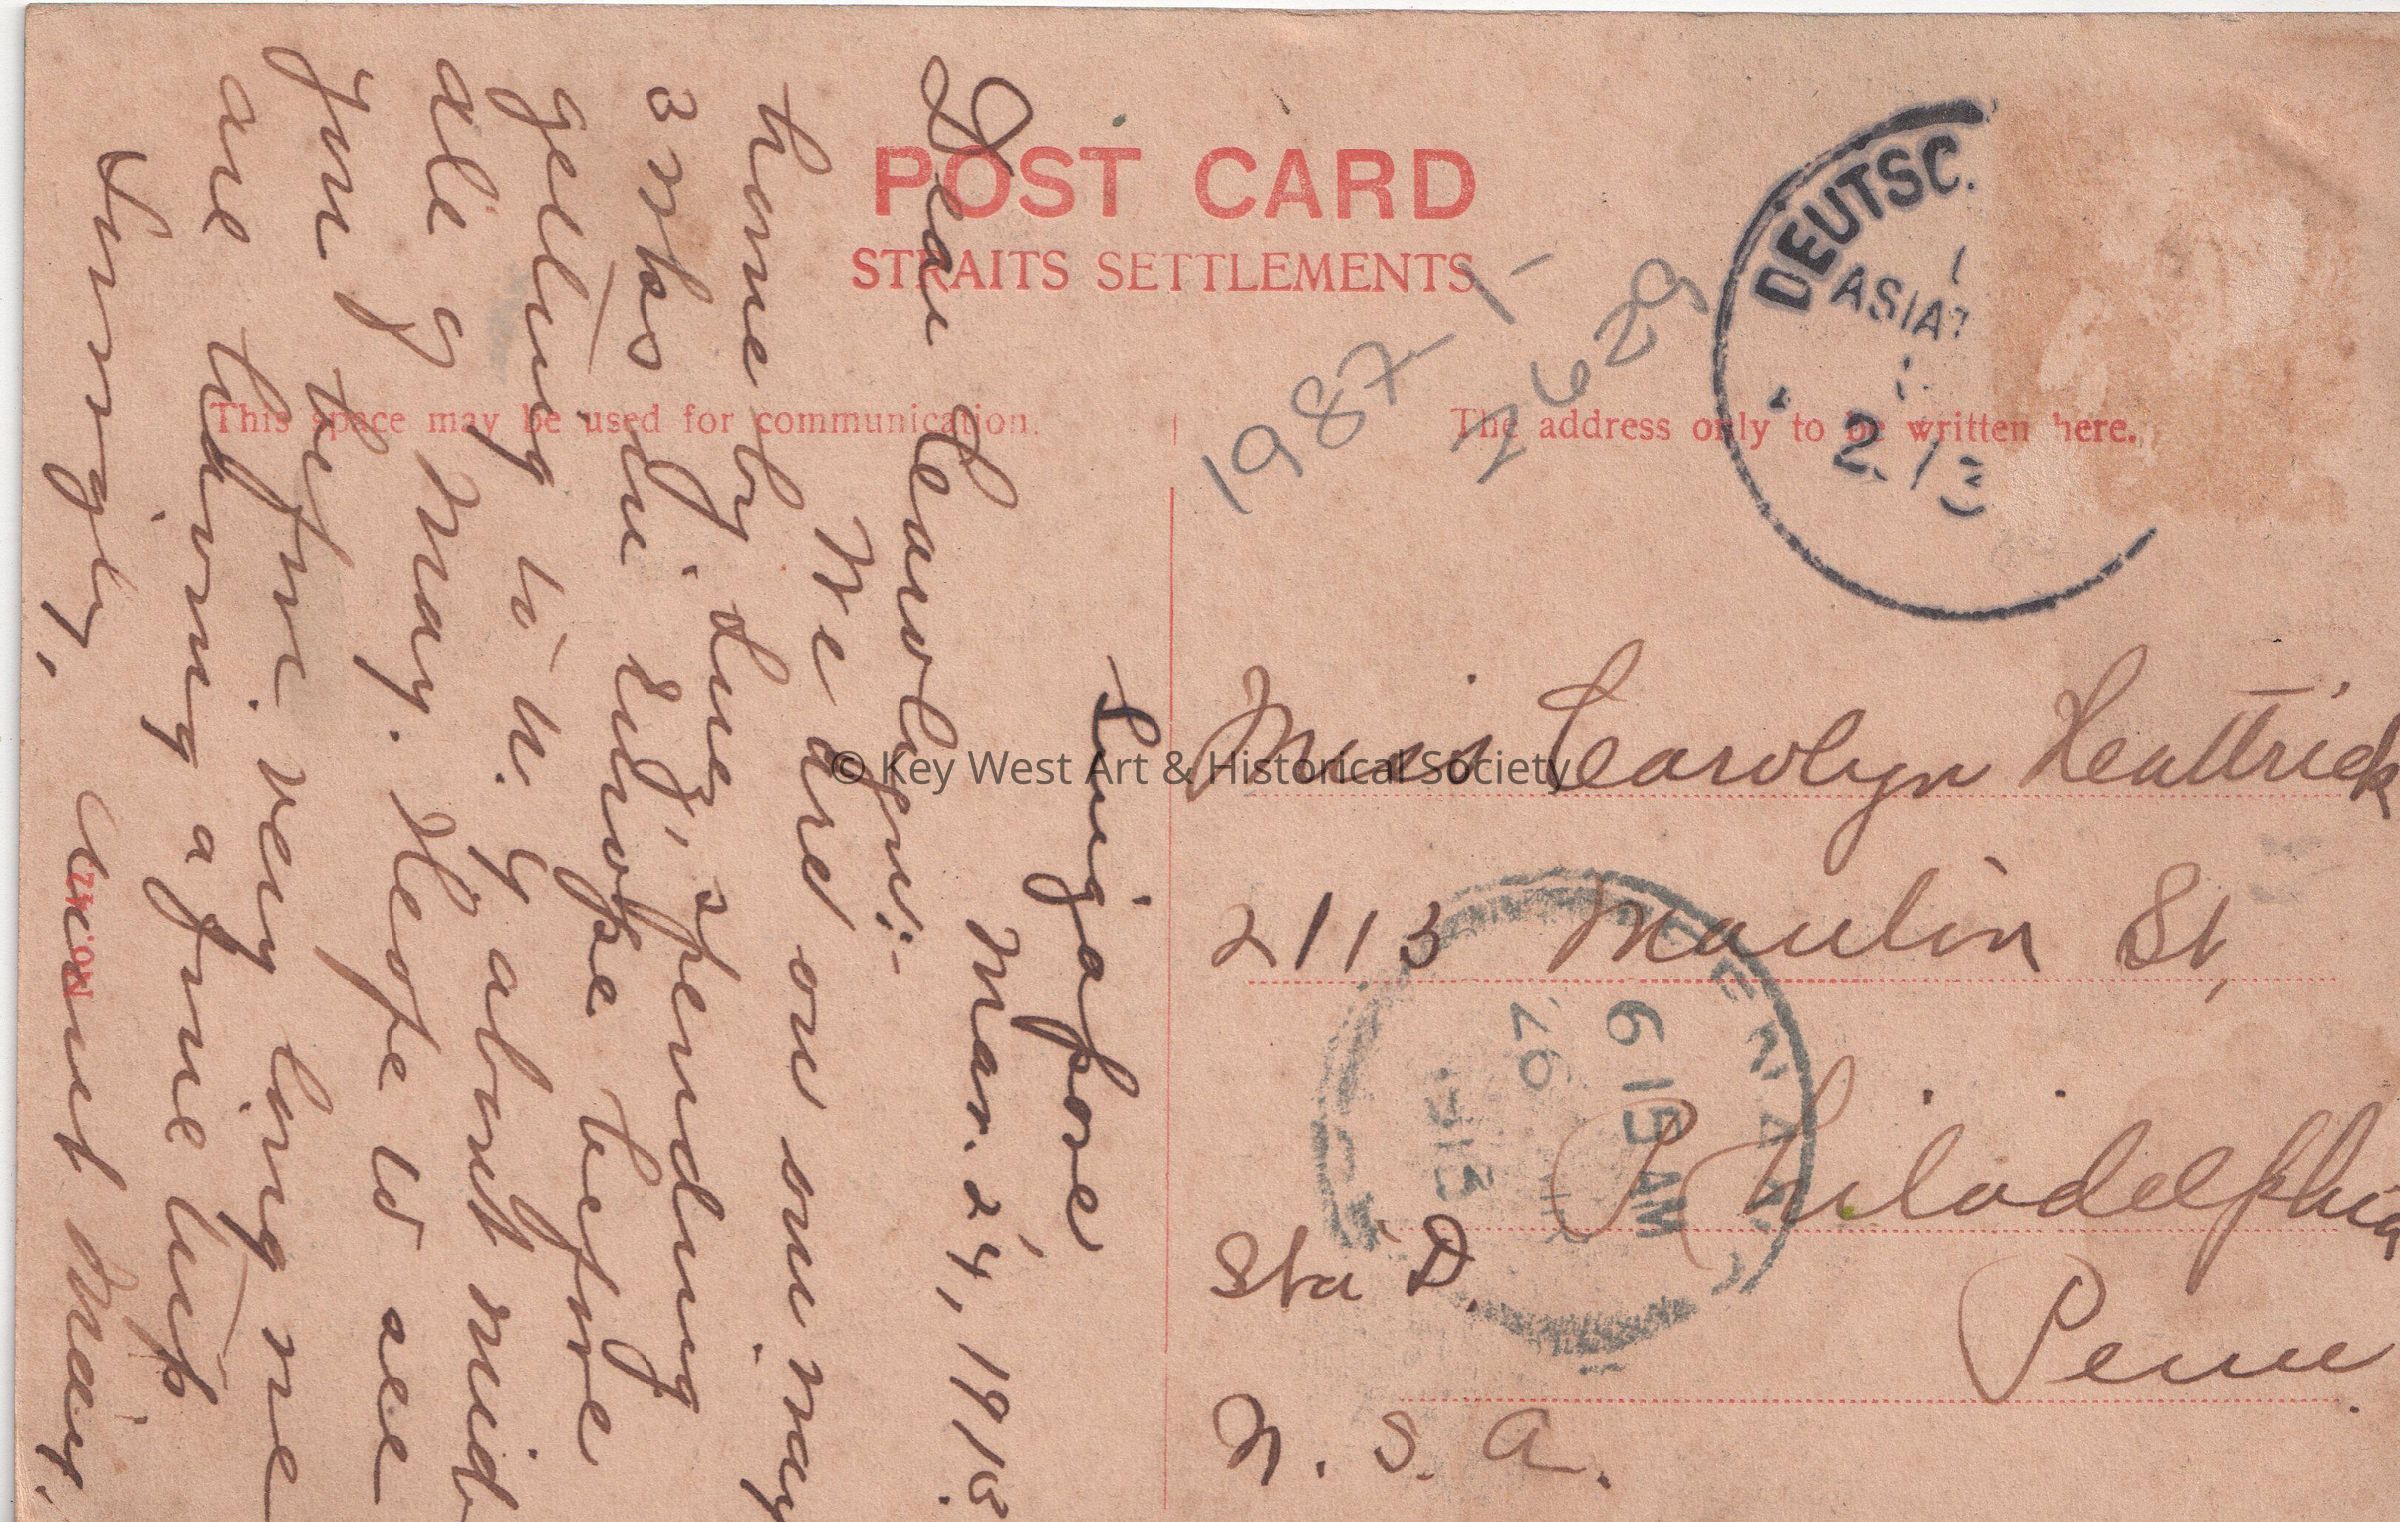 POST CARD
STRAITS SETTLEMENTS
This space may be used for communication.
The address only to be written here.
Singapore
Mar. 24, 1913.
Dear Carolyn:-
We are on our way
home by Luz, spending
3 wks in Europe before
getting to N. Y. about mid-
dle of May. Hope to see
you before very long. We
are having a fine trip
Lovingly, Aunt Mary.
Miss Carolyn Heattrick
2113 Moulin St,
Philadelphia
Sta D.
Penn.
U. S. A.
1987-1-
2629
DEUTSC.
ASIAT
2.13
6 15 AM
26
13
© Key West Art & Historical Society